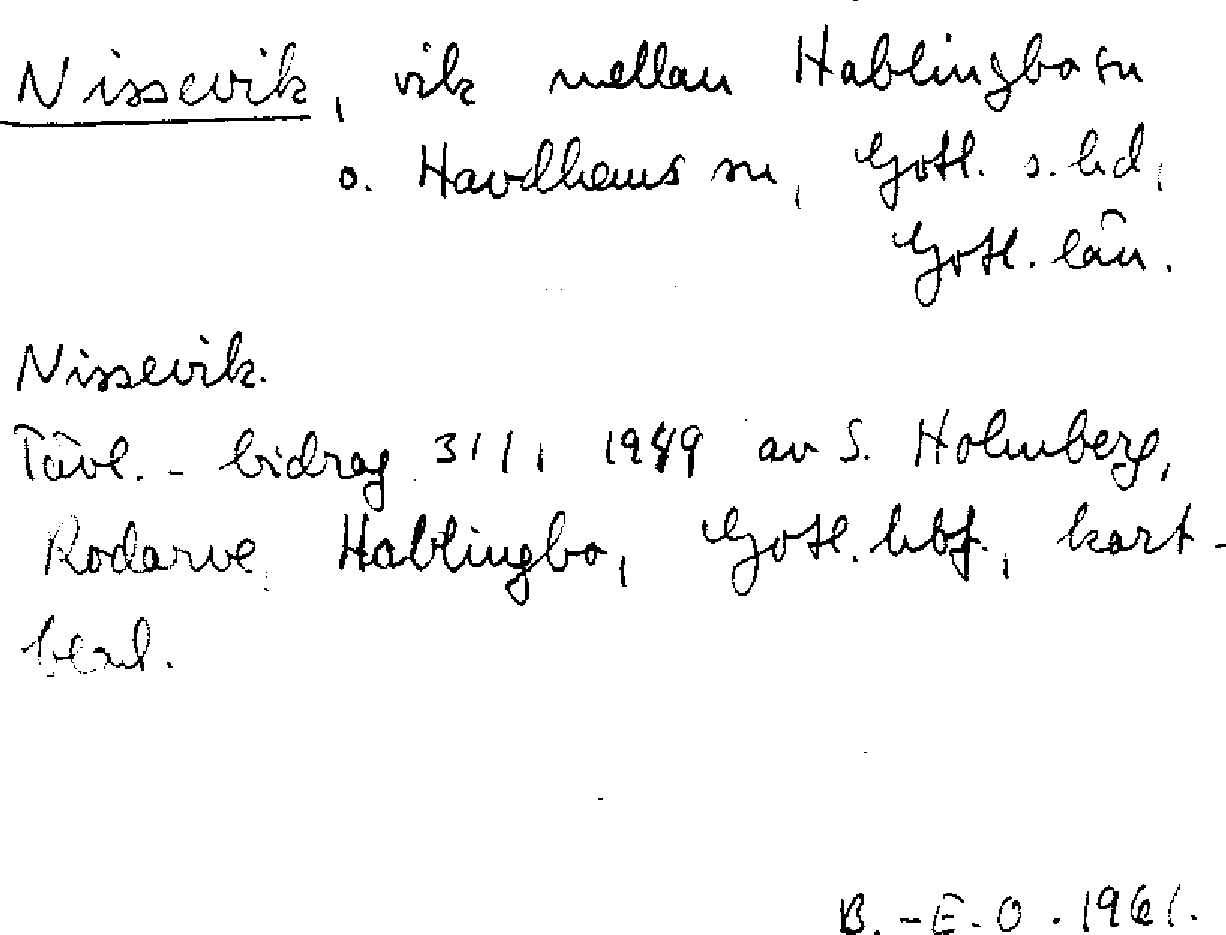 Nissevik, vik mellan Hablingbo sn
o. Havdhems sn, Gotl. s. hd,
Gotl. län.
Nissevik.
Tävl.-bidrag 31/1 1949 av S. Holmberg,
Rodarve, Hablingbo, Gotl. hbf., kart-
bemd.
B.-E.O. 1961.